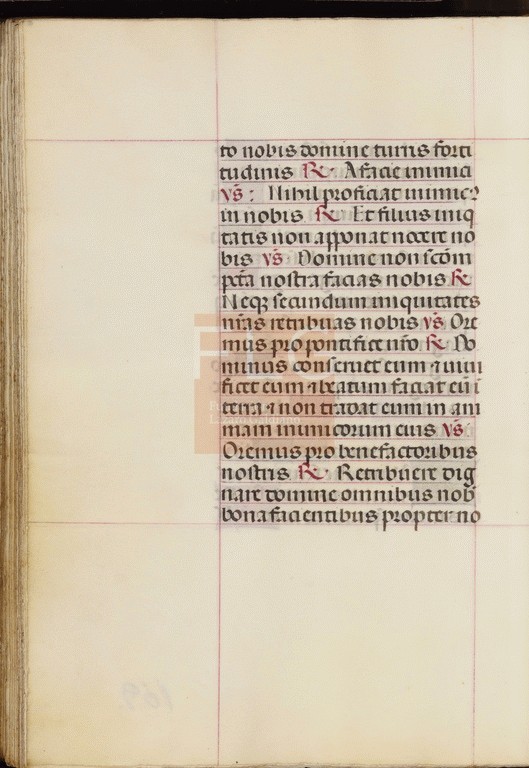 to nobis domine turris forti
tudinis ℟ A facie inimici
℣s: Nihil proficiat inimicꝰ
in nobis ℟ Et filius iniq
tatis non apponat nocere no
bis ℣s Domine non scd̄m
pctā nostra facias nobis ℟
Neqꝫ secundum iniquitates
nr̄as retribuas nobis ℣s Ore
mus pro pontifice nr̄o ℟ Do
minus conseruet eum ⁊ uiui
ficet eum ⁊ beatum faciat eū ī
terra ⁊ non tradat eum in ani
mam inimicorum eius ℣s
Oremus pro benefactoribus
nostris ℟ Retribuere dig
nare domine omnibus nob
bona facientibus propter no
169